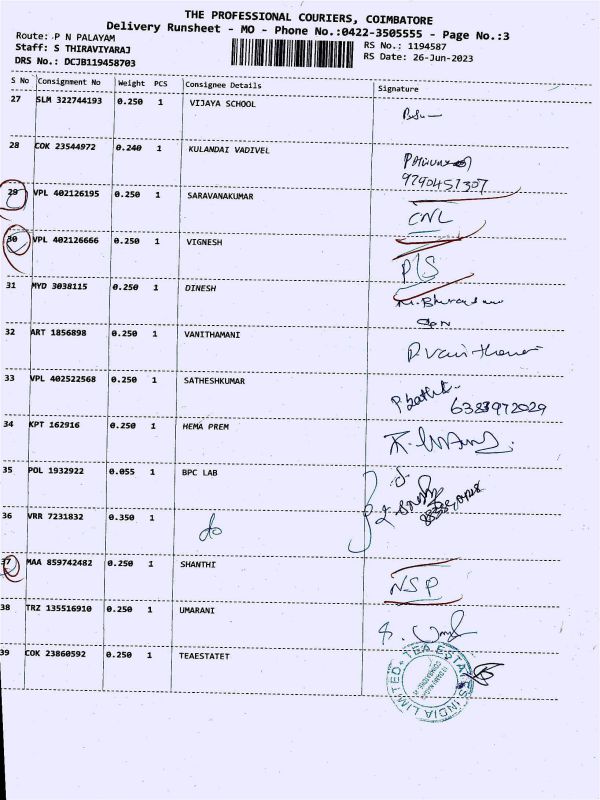 THE PROFESSIONAL COURIERS, COIMBATORE
Delivery Runsheet - MO - Phone No.:0422-3505555 - Page No.:3
Route: P N PALAYAM
Staff: S THIRAVIYARAJ
DRS No.: DCJB119458703
RS No.: 1194587
RS Date: 26-Jun-2023
S No Consignment No Weight PCS Consignee Details Signature
27 SLM 322744193 0.250 1 VIJAYA SCHOOL
28 COK 23544972 0.240 1 KULANDAI VADIVEL
9790457307
29 VPL 402126195 0.250 1 SARAVANAKUMAR CNL
30 VPL 402126666 0.250 1 VIGNESH P/S
31 MYD 3038115 0.250 1 DINESH
32 ART 1856898 0.250 1 VANITHAMANI
33 VPL 402522568 0.250 1 SATHESHKUMAR
6383972029
34 KPT 162916 0.250 1 HEMA PREM
35 POL 1932922 0.055 1 BPC LAB
36 VRR 7231832 0.350 1 do
37 MAA 859742482 0.250 1 SHANTHI NSP
38 TRZ 135516910 0.250 1 UMARANI
39 COK 23860592 0.250 1 TEAESTATET
TEA ESTATES INDIA LIMITED